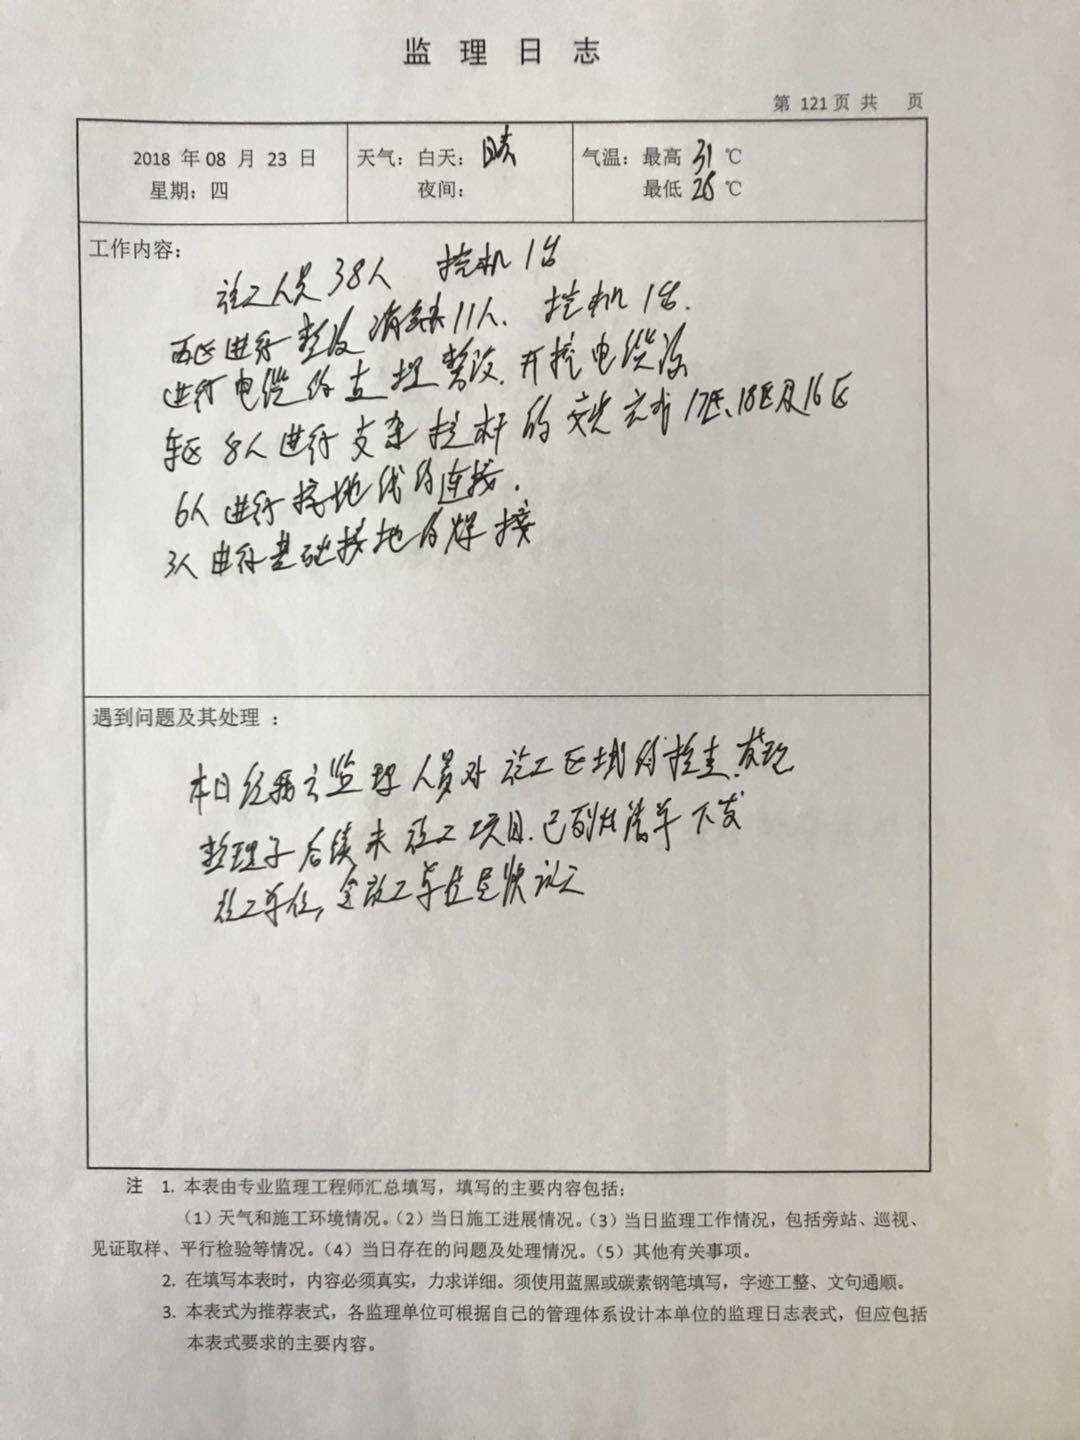 监理日志
第 121 页 共 页
2018 年 08 月 23 日
星期：四
天气：白天：晴
夜间：
气温：最高 31 ℃
最低 26 ℃
工作内容：
施工人员38人 挖机1台
西区进行整改消缺11人、挖机1台.
进行电缆的直埋整改、开挖电缆沟
东区 8人进行支架拉杆的安装 17区、18区及16区
6人进行接地线的连接.
3人进行基础接地的焊接
遇到问题及其处理：
本日 监理人员对施工区域的检查、发现
整理了后续未施工项目、已列出清单下发
施工单位, 施工单位尽快
注 1. 本表由专业监理工程师汇总填写，填写的主要内容包括：
（1）天气和施工环境情况。（2）当日施工进展情况。（3）当日监理工作情况，包括旁站、巡视、
见证取样、平行检验等情况。（4）当日存在的问题及处理情况。（5）其他有关事项。
2. 在填写本表时，内容必须真实，力求详细。须使用蓝黑或碳素钢笔填写，字迹工整、文句通顺。
3. 本表式为推荐表式，各监理单位可根据自己的管理体系设计本单位的监理日志表式，但应包括
本表式要求的主要内容。